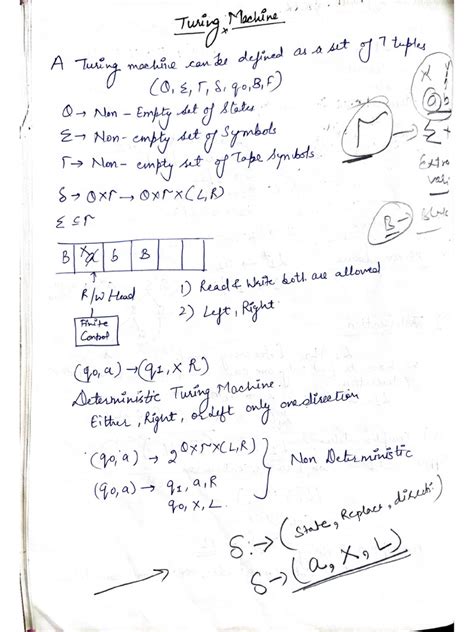 Turing Machine
A Turing machine can be defined as a set of 7 tuples
(Q, Σ, Γ, δ, q0, B, F)
Q → Non - Empty set of States
Σ → Non - empty set of Symbols
Γ → Non - empty set of Tape Symbols.
δ → Q×Γ → Q×Γ×(L,R)
Σ ⊆ Γ
X
Γ → Σ +
Extra
B → Blank
B X a b B
R/W Head
Finite
Control
1) Read & Write both are allowed
2) Left, Right
(q0, a) → (q1, X R)
Deterministic Turing Machine
Either, Right, or Left only one direction
(q0, a) → 2^Q×Γ×(L,R)
(q0, a) → q1, a, R
q0, X, L
Non Deterministic
δ:→ (State, Replace, directi)
δ → (a, X, L)